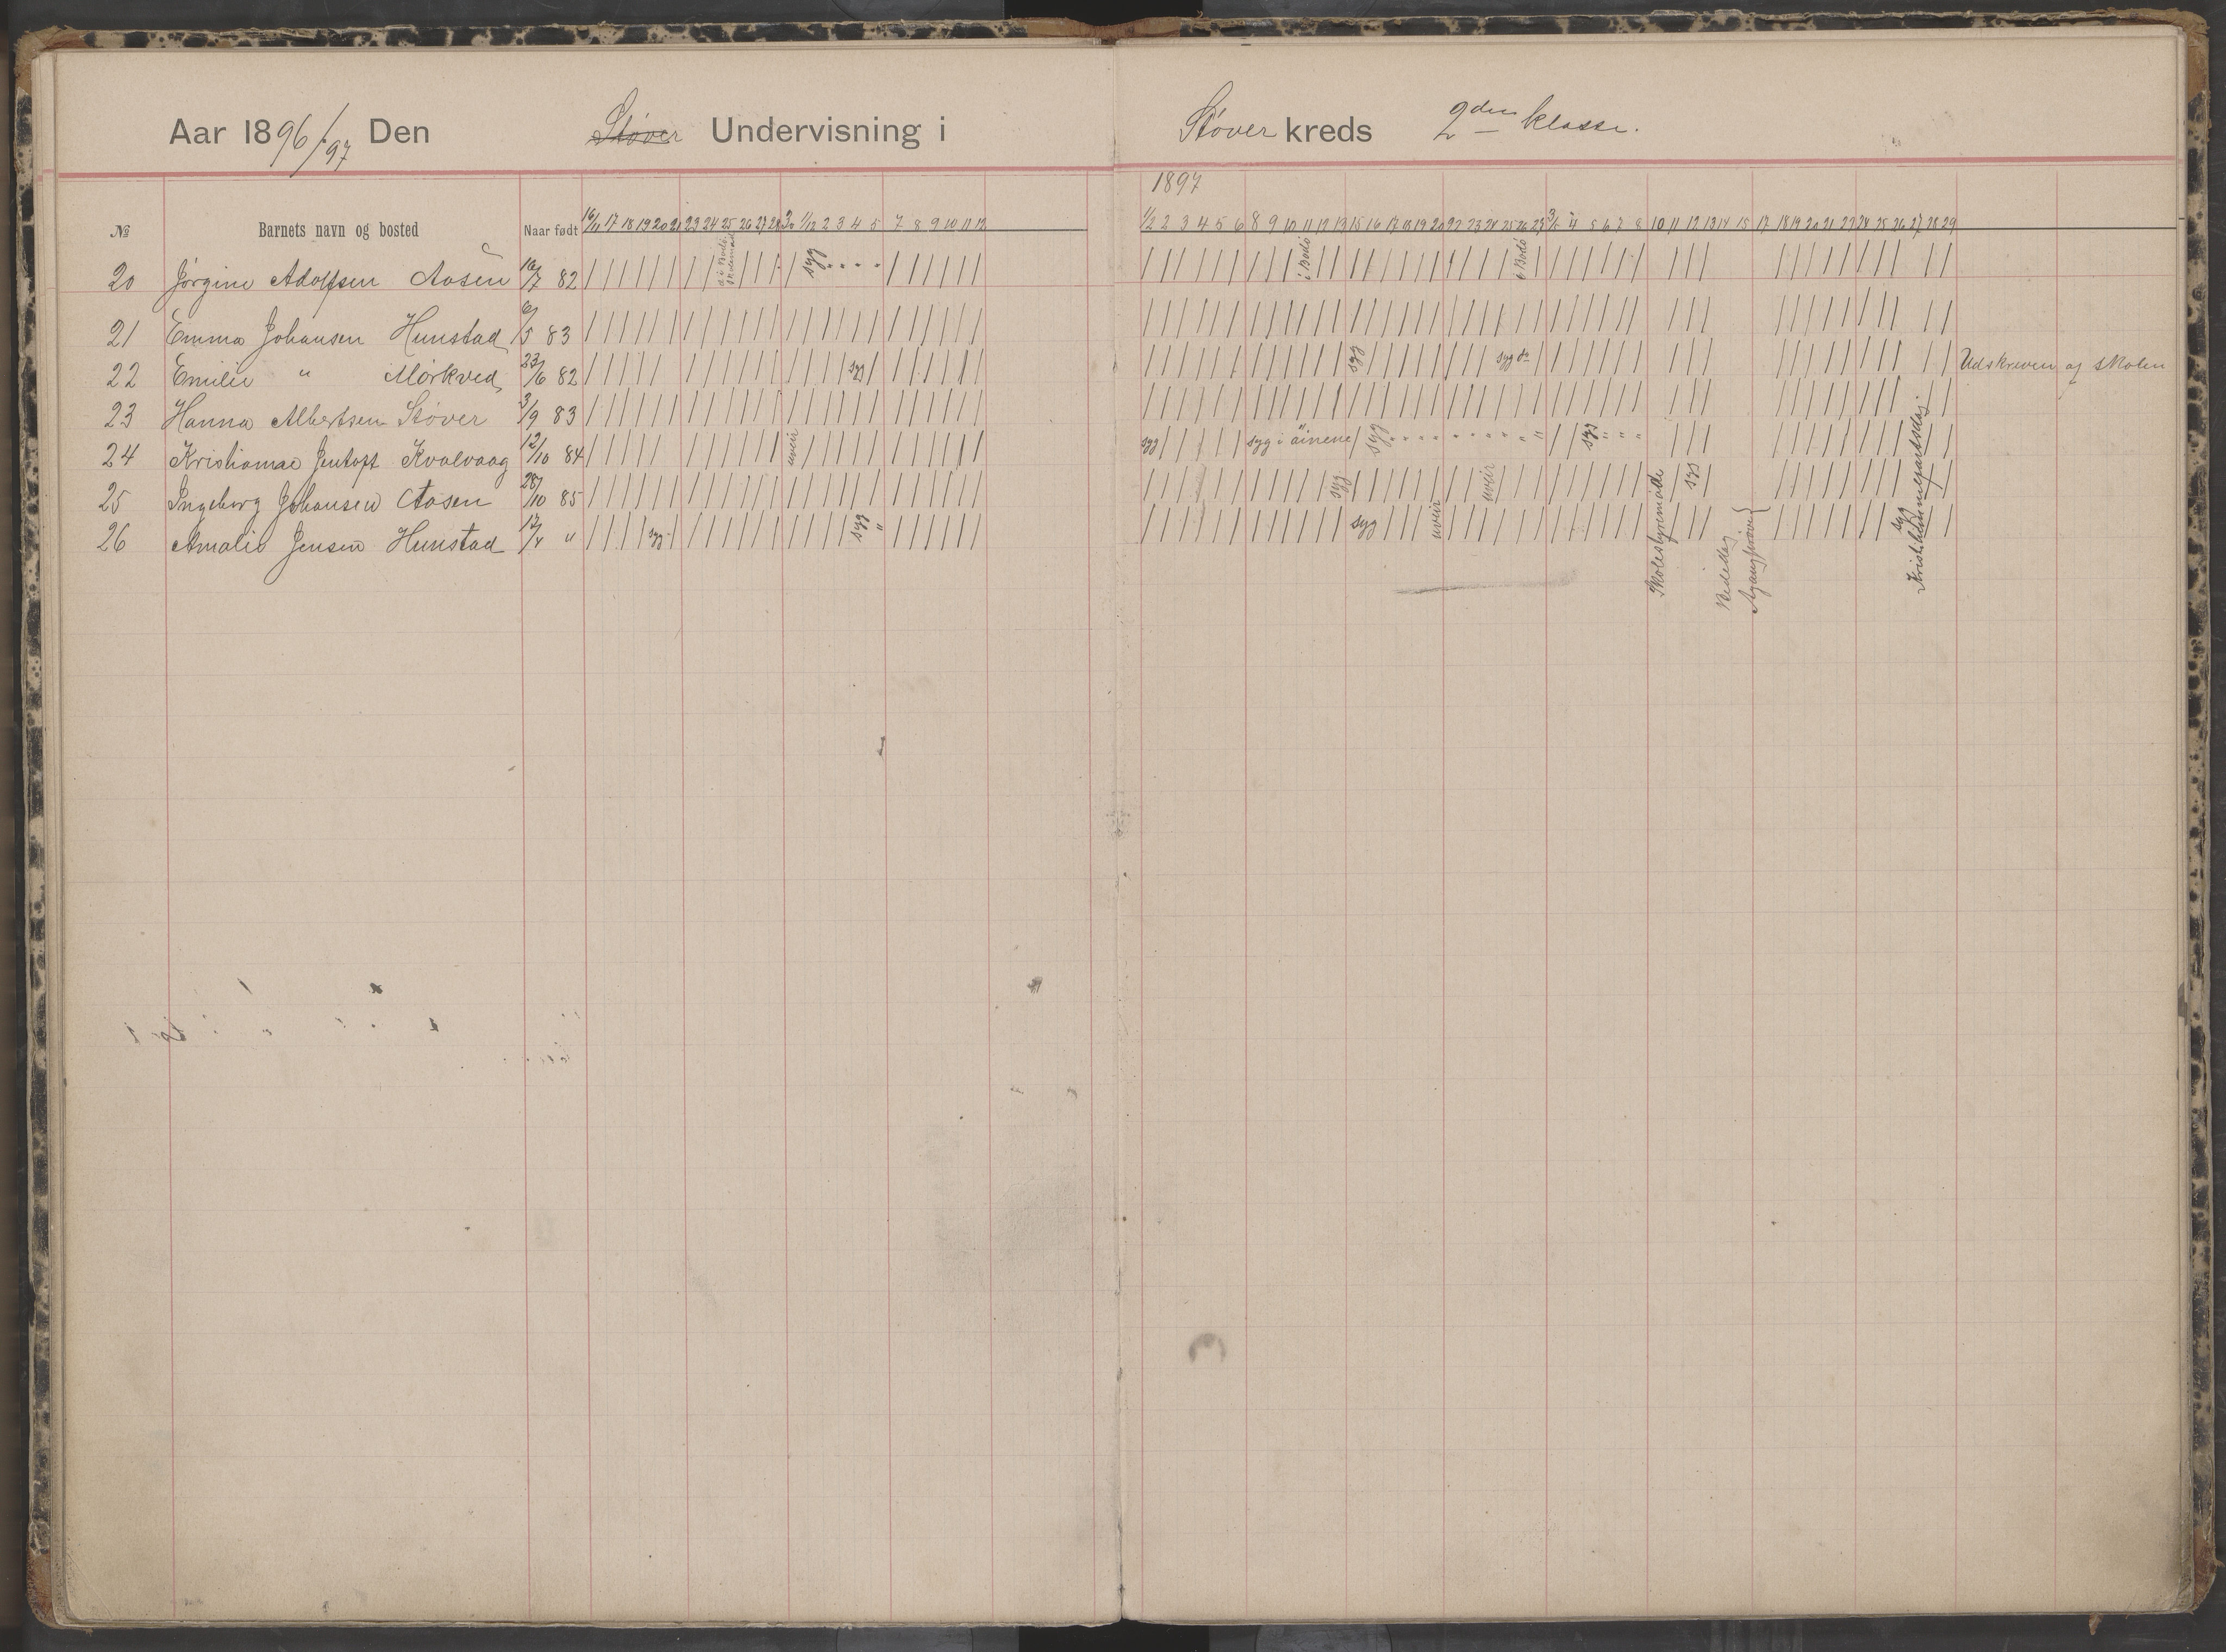 Aar 1896/97 Den Støver Undervisning i Støver kreds 2den klasse.
1897
№ Barnets navn og bosted Naar født 16/11 17 18 19 20 21 23 24 25 26 27 28 30 1/12 2 3 4 5 7 8 9 10 11 12 1/2 2 3 4 5 6 8 9 10 11 12 13 15 16 17 18 19 20 22 23 24 25 26 27 3/5 4 5 6 7 8 10 11 12 13 14 15 17 18 19 20 21 22 24 25 26 27 28 29
20 Jørgine Adolfsen Aasen 16/7 82 syg " " " " i Bodø i Bodø
21 Emma Johansen Hunstad 6/5 83
22 Emilie " Mørkved 23/6 82 syg syg syg do Udskreven af skolen
23 Hanna Albertsen Støver 3/9 83
24 Kristianae Jentoft Kvalvaag 12/10 84 uveir syg syg i øinene syg " " " " " " " " " syg " " "
25 Ingeborg Johansen Aasen 28/10 85 syg uveir syg
26 Amalie Jensen Hunstad 12/4 " syg syg " syg uveir syg
Skolestyremøde
Bededag
Kristi himmelfartsdag